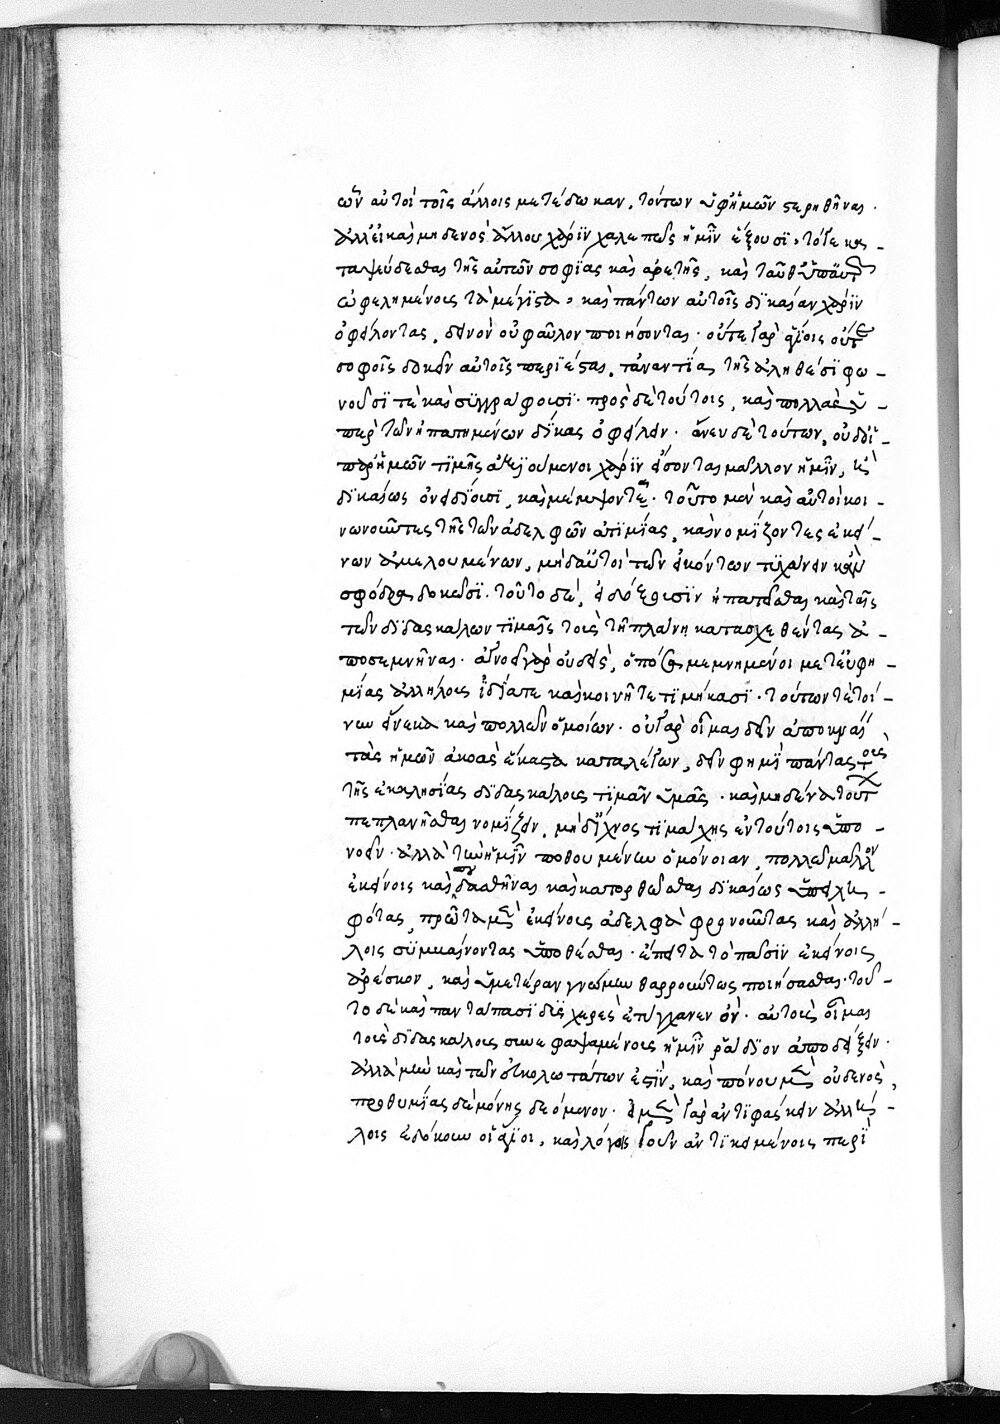 ὧν αὐτοὶ τοῖς ἄλλοις μετέδωκαν, τούτων ὑφ' ἡμῶν στερηθῆναι.
ἀλλ' εἰ καὶ μηδενὸς ἄλλου χάριν χαλεπῶς ἡμῖν ἕξουσι, τό γε κα-
ταψεύδεσθαι τῆς αὐτῶν σοφίας καὶ ἀρετῆς, καὶ ταῦθ' ὑπ'
ὠφελημένοις τὰ μέγιστα, καὶ πάντων αὐτοῖς δικαίαν χάριν
ὀφείλοντας, δεινὸν οὐ φαῦλον ποιήσονται. οὔτε γὰρ ἁγίοις οὔτε
σοφοῖς δοκεῖν αὐτοῖς περιέσται, τἀναντία τῆς ἀληθείσι φω-
νοῦσί τε καὶ συγγράφουσι. πρὸς δὲ τούτοις, καὶ πολλὰς ὑ-
πὲρ τῶν ἠπατημένων δίκας ὀφείλειν. ἄνευ δὲ τούτων, οὐδὲ
παρ' ἡμῶν τιμῆς ἀξιούμενοι χάριν εἴσονται μᾶλλον ἡμῖν, ἢ
δικαίως ὀνειδίουσι, καὶ μέμψονται. τοῦτο μὲν καὶ αὐτοὶ κοι-
νωνοῦντες τῆς τῶν ἀδελφῶν ἀτιμίας, καὶ νομίζοντες ἐκεί-
νων ἀμελουμένων, μηδ' αὐτοὶ τῶν εἰκότων τυγχάνειν κἂν
σφόδρα δοκῶσι. τοῦτο δέ, εἰ δόξει σὶν ἠπατῆσθαι καὶ ταῖς
τῶν διδασκάλων τιμαῖς τοὺς τῇ πλάνῃ κατασχεθέντας ἀ-
ποσεμνῆναι. ἀγνοεῖ γὰρ οὐδείς, ὁπόσα μεμνημένοι μετ' εὐφη-
μίας ἀλλήλους ἰδίᾳ τε καὶ κοινῇ τετιμήκασι. τούτων τε τοί-
νυν ἕνεκα καὶ πολλῶν ὁμοίων. οὐ γὰρ οἶμαι δεῖν ἀποκναί-
τὰς ἡμῶν ἀκοὰς ἕκαστα καταλέγων, δεῖν φημὶ πάντας τοὺς
τῆς ἐκκλησίας διδασκάλους τιμᾶν ὑμᾶς. καὶ μηδένα τούτων
πεπλανῆσθαι νομίζειν, μηδ' ἴχνος τι μάχης ἐν τούτοις ὑπο-
νοεῖν. ἀλλὰ τὴν ἡμῖν ποθουμένην ὁμόνοιαν, πολλῷ μᾶλλον
ἐκείνοις καὶ σπουδασθῆναι καὶ κατορθῶσθαι δικαίως ὑπειλη-
φότας, πρῶτα μὲν ἐκείνοις ἀδελφὰ φρονοῦντας καὶ ἀλλή-
λοις συμβαίνοντας ὑποθέσθαι. ἔπειτα τὸ πᾶσιν ἐκείνοις
ἀρέσκον, καὶ ὑμετέραν γνώμην θαρρούντως ποιήσασθαι. τοῦ-
το δὲ καὶ παντάπασι δυσχερὲς ἐτύγχανεν ὄν. αὐτοὺς οἶμαι
τοὺς διδασκάλους συνεφαψαμένους ἡμῖν ῥᾴδιον ἀποδείξειν.
ἀλλὰ μὴν καὶ τῶν εὐκολωτάτων ἐστίν, καὶ πόνου μὲν οὐδενός,
προθυμίας δὲ μόνης δεόμενον. εἰ μὲν γὰρ ἀντιφάσκειν ἀλλή-
λοις ἐδόκουν οἱ ἅγιοι, καὶ λόγοις γοῦν ἀντικειμένοις περὶ